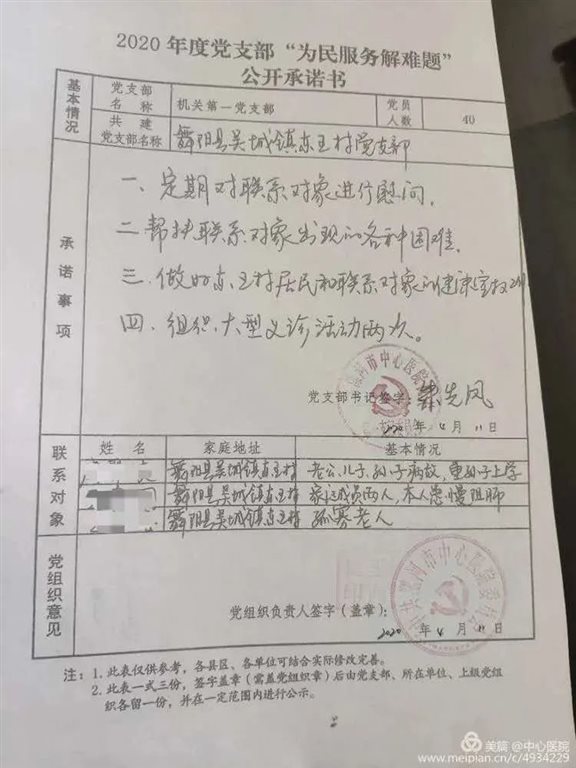 2020 年度党支部“为民服务解难题”
公开承诺书
基本情况
党支部名称
机关第一党支部
党员人数
40
共建党支部名称
舞阳县吴城镇东王村党支部
承诺事项
一、定期对联系对象进行慰问。
二、帮扶联系对象出现的各种困难。
三、做好东王村居民和联系对象的健康
四、组织大型义诊活动两次。
党支部书记签字：朱先凤
2020 年 4 月 11 日
联系对象
姓 名
家庭地址
基本情况
舞阳县吴城镇东王村
老公、儿子、孙子病故，重孙子上学
舞阳县吴城镇东王村
家庭成员两人，本人患慢阻肺
舞阳县吴城镇东王村
孤寡老人
党组织意见
党组织负责人签字（盖章）：
2020 年 4 月 11 日
注：1. 此表仅供参考，各县区、各单位可结合实际修改完善。
2. 此表一式三份，签字盖章（需盖党组织章）后由党支部、所在单位、上级党组
织各留一份，并在一定范围内进行公示。
美篇 @中心医院
www.meipian.cn/c/4934229